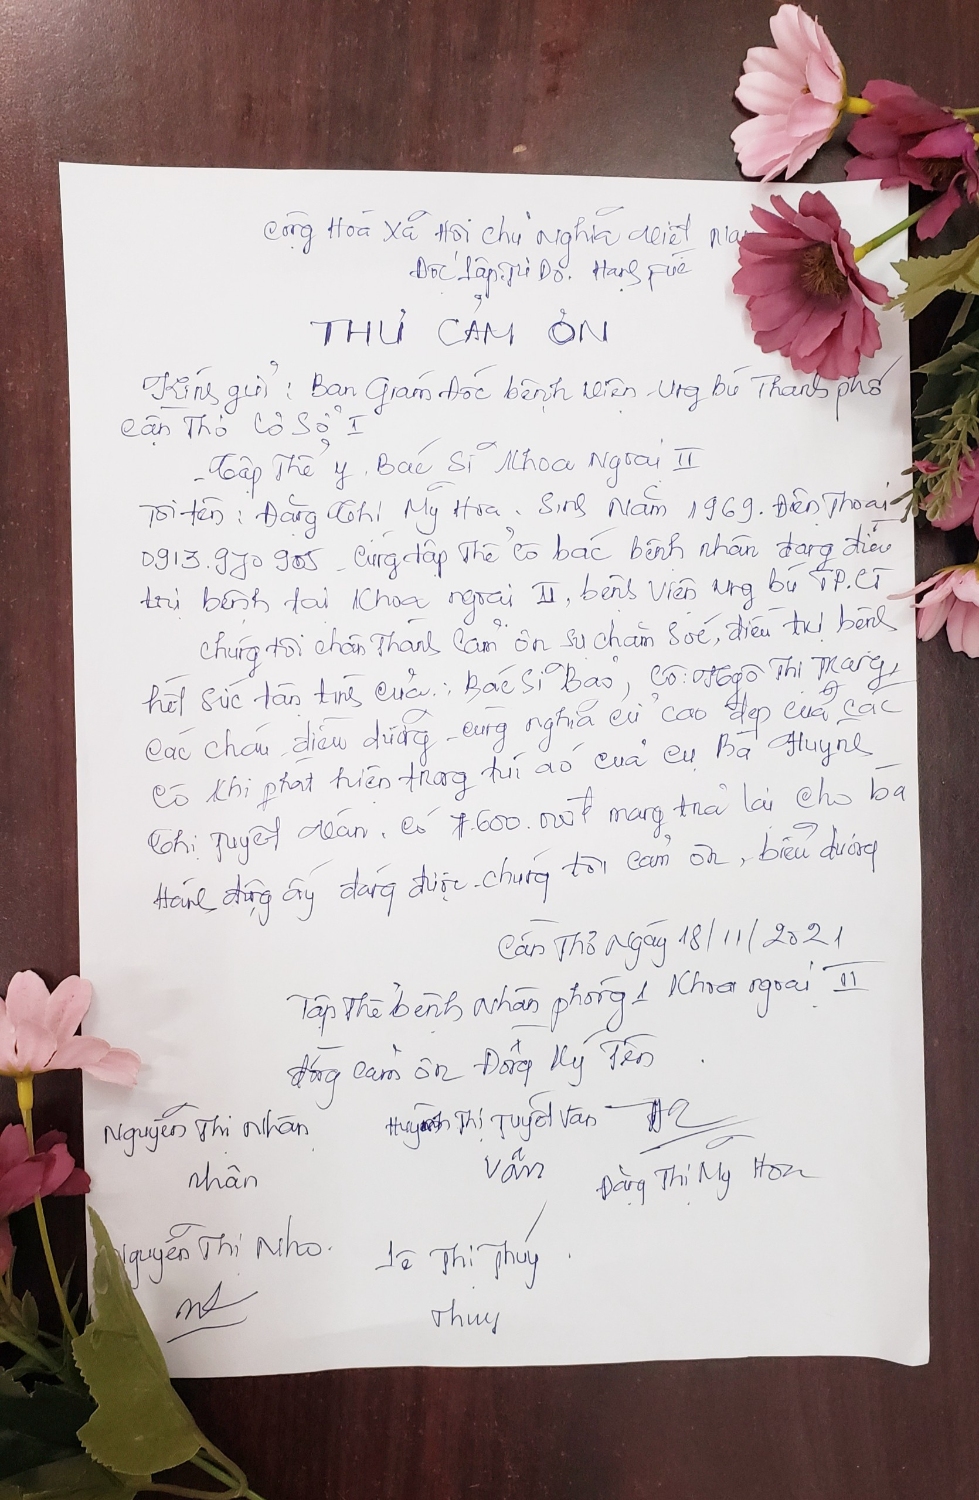 Cộng Hoà Xã Hội chủ Nghĩa Việt Nam
Độc lập. Tự Do. Hạnh Phúc
THƯ CẢM ƠN
Kính gửi: Ban Giám đốc bệnh viện ưng bú Thành phố
Cần Thơ Cơ Sở I
- Tập Thể y, Bác Sĩ Khoa Ngoại II
Tôi tên: Đặng Thị Mỹ Hoa. Sinh Năm 1969. Điện Thoại
0913.970 905 - Cùng tập thể cô bác bệnh nhân đang điều
trị bệnh tại Khoa ngoại II, bệnh viện ưng bú TP.CT
chúng tôi chân thành cảm ơn sự chăm sóc, điều trị bệnh
hết sức tận tình của: Bác Sĩ Bảo, Cô: Ngô Thị Trang,
các cháu điều dưỡng - cùng nghĩa cử cao đẹp của các
cô khi phát hiện trong túi áo của cụ Bà Huỳnh
Thị Tuyết Vân. Có 7.600.000đ mang trả lại cho bà
Hành động ấy đáng được chúng tôi cảm ơn, biểu dương
Cần Thơ Ngày 18/11/2021
Tập Thể bệnh nhân phòng 1 Khoa ngoại II
đồng cảm ơn Đồng Ký Tên
Nguyễn Thị Nhân Huỳnh Thị Tuyết Vân
Nhân Vân Đặng Thị Mỹ Hoa
Nguyễn Thị Nho. Lê Thị Thúy
Thuy